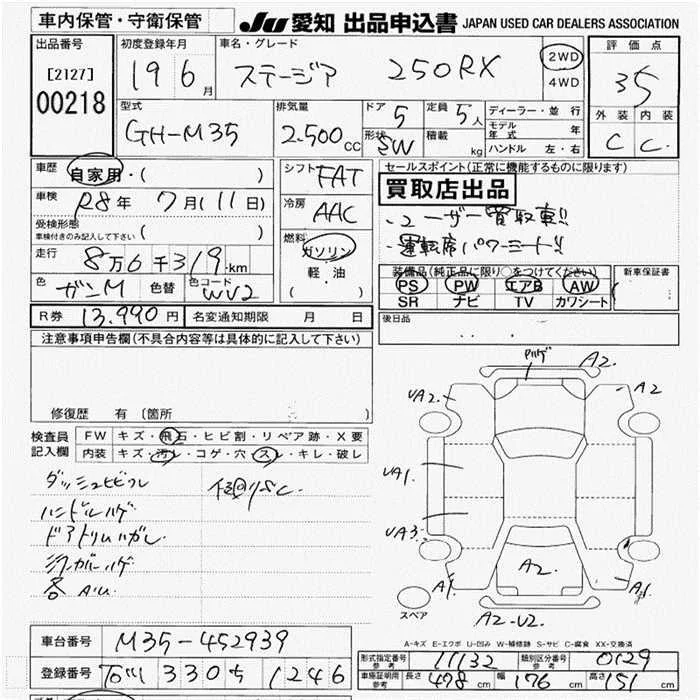 車内保管・守衛保管
JU 愛知 出品申込書 JAPAN USED CAR DEALERS ASSOCIATION
出品番号
[2127]
00218
初度登録年月
19 6 月
車名・グレード
ステージア 250RX
2WD
4WD
評価点
3.5
外装 内装
C C
型式
GH-M35
排気量
2.500 CC
ドア 5
形状 SW
定員 5 人
積載 kg
ディーラー・並行
モデル年式 年
ハンドル 左・右
車歴 自家用・( )
車検 R8年 7月(11日)
受検形態
車検付きのみ記入して下さい ( )
走行 8万6千319km
色 ガンM 色替 色コード WV2
シフト FAT
冷房 AAC
燃料
ガソリン
軽・油
( )
セールスポイント(正常に機能するものに限ります)
買取店出品
・ユーザー買取車!!
・運転席パワーシート!!
装備品(純正品に限り○をつけてください)
PS PW エアB AW
SR ナビ TV カワシート
新車保証書
R券 13.990円 名変通知期限 月 日
後日品
注意事項申告欄(不具合内容等は具体的に記入して下さい)
修復歴 有 (箇所 )
検査員
記入欄
FW キズ・飛石・ヒビ割・リペア跡・X要
内装 キズ・汚レ・コゲ・穴・スレ・キレ・破レ
ダッシュヒビワレ
ハンドルハゲ
ドアトリムハガレ
シフトカバーハゲ
各AU.
Pハゲ
A2.
UA2.
A2
UA1.
UA3.
A1.
A2.
A1.
A2-U2.
スペア
A-キズ E-エクボ U-凹み W-補修跡 S-サビ C-腐食 XX-交換済
車台番号 M35-452939
登録番号 石川 330 ち 1246
形式指定番号 参考 11132
類別区分番号 参考 0129
車庫証明用 参考 長さ 478 cm 幅 176 cm 高さ 151 cm